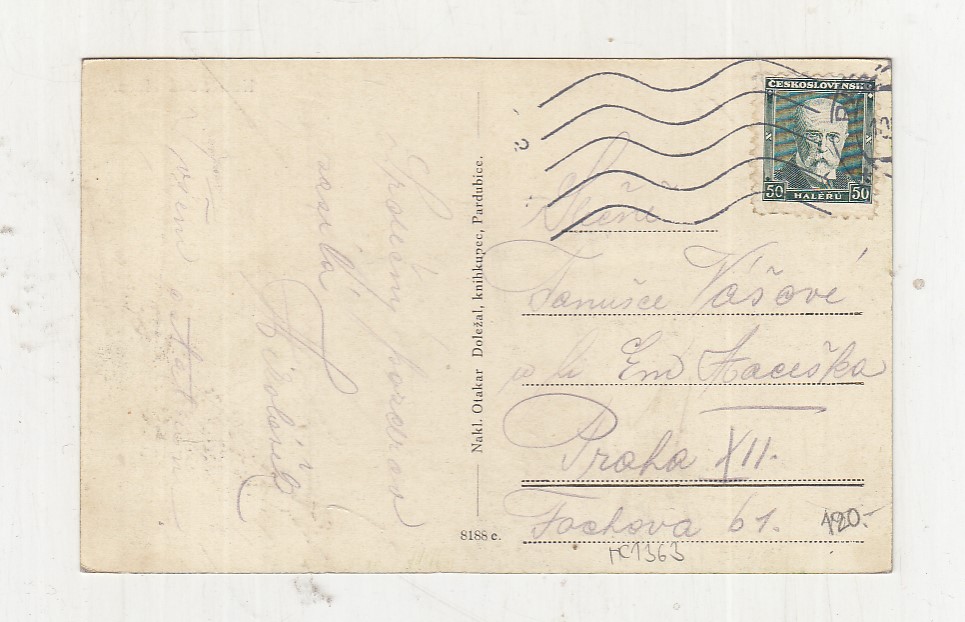 Srdečný pozdrav
zasílá
všem ostatním
Nakl. Otakar Doležal, knihkupec, Pardubice.
8188 c.
ČESKOSLOVENSKO
50 HALÉŘŮ 50
Slečně
Fanušce Vášové
Em
Praha XII.
Fochova 61.
120.-
MC1363